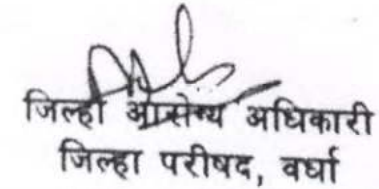 जिल्हा आरोग्य अधिकारी
जिल्हा परीषद, वर्धा